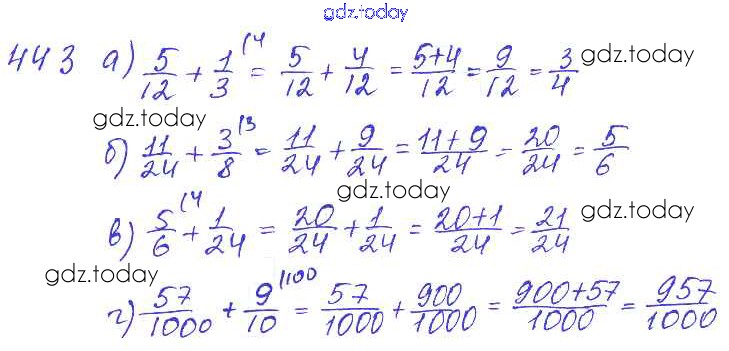 gdz.today
443 а) 5/12 + 1/3 (4 = 5/12 + 4/12 = 5+4/12 = 9/12 = 3/4 gdz.today
gdz.today
б) 11/24 + 3/8 (3 = 11/24 + 9/24 = 11+9/24 = 20/24 = 5/6
gdz.today
в) 5/6 (4 + 1/24 = 20/24 + 1/24 = 20+1/24 = 21/24 gdz.today
gdz.today
г) 57/1000 + 9/10 (100 = 57/1000 + 900/1000 = 900+57/1000 = 957/1000